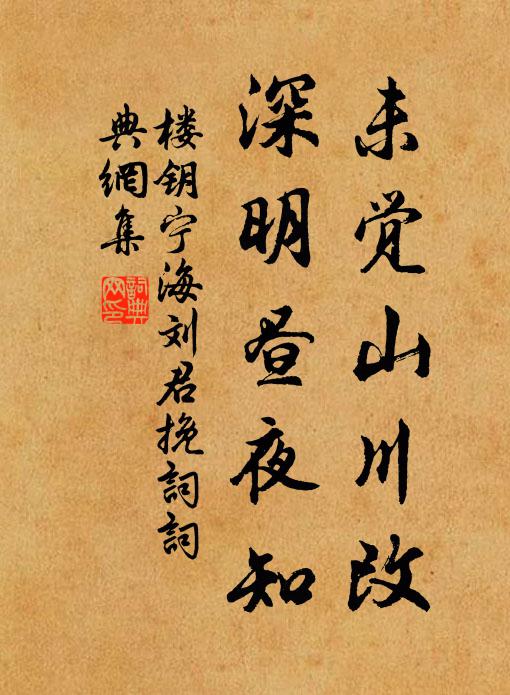 未觉山川改
深明昼夜知
楼钥宁海刘君挽詞詞
典網集
詞典
网印